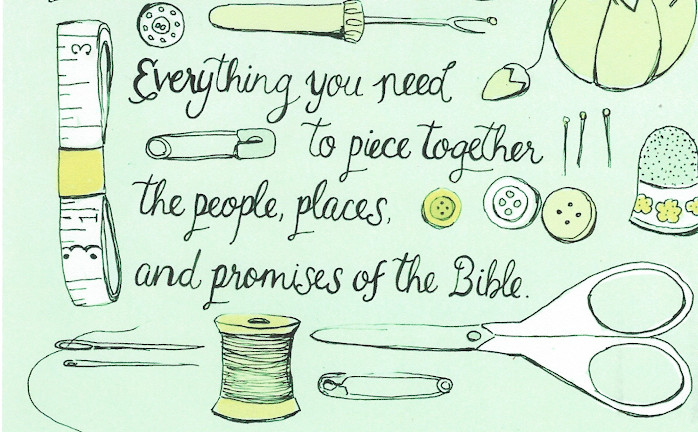 Everything you need
to piece together
the people, places,
and promises of the Bible.